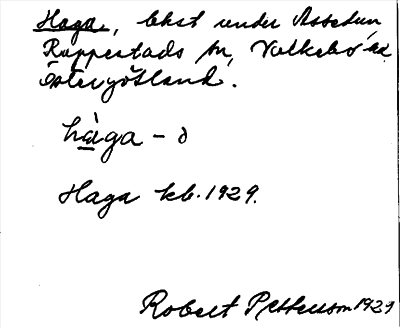 Haga, bkst under Assedun,
Rappestads sn, Valkebo hd
Östergötland.
hàga - ∂
Haga kb. 1929.
Robert Petterson 1929